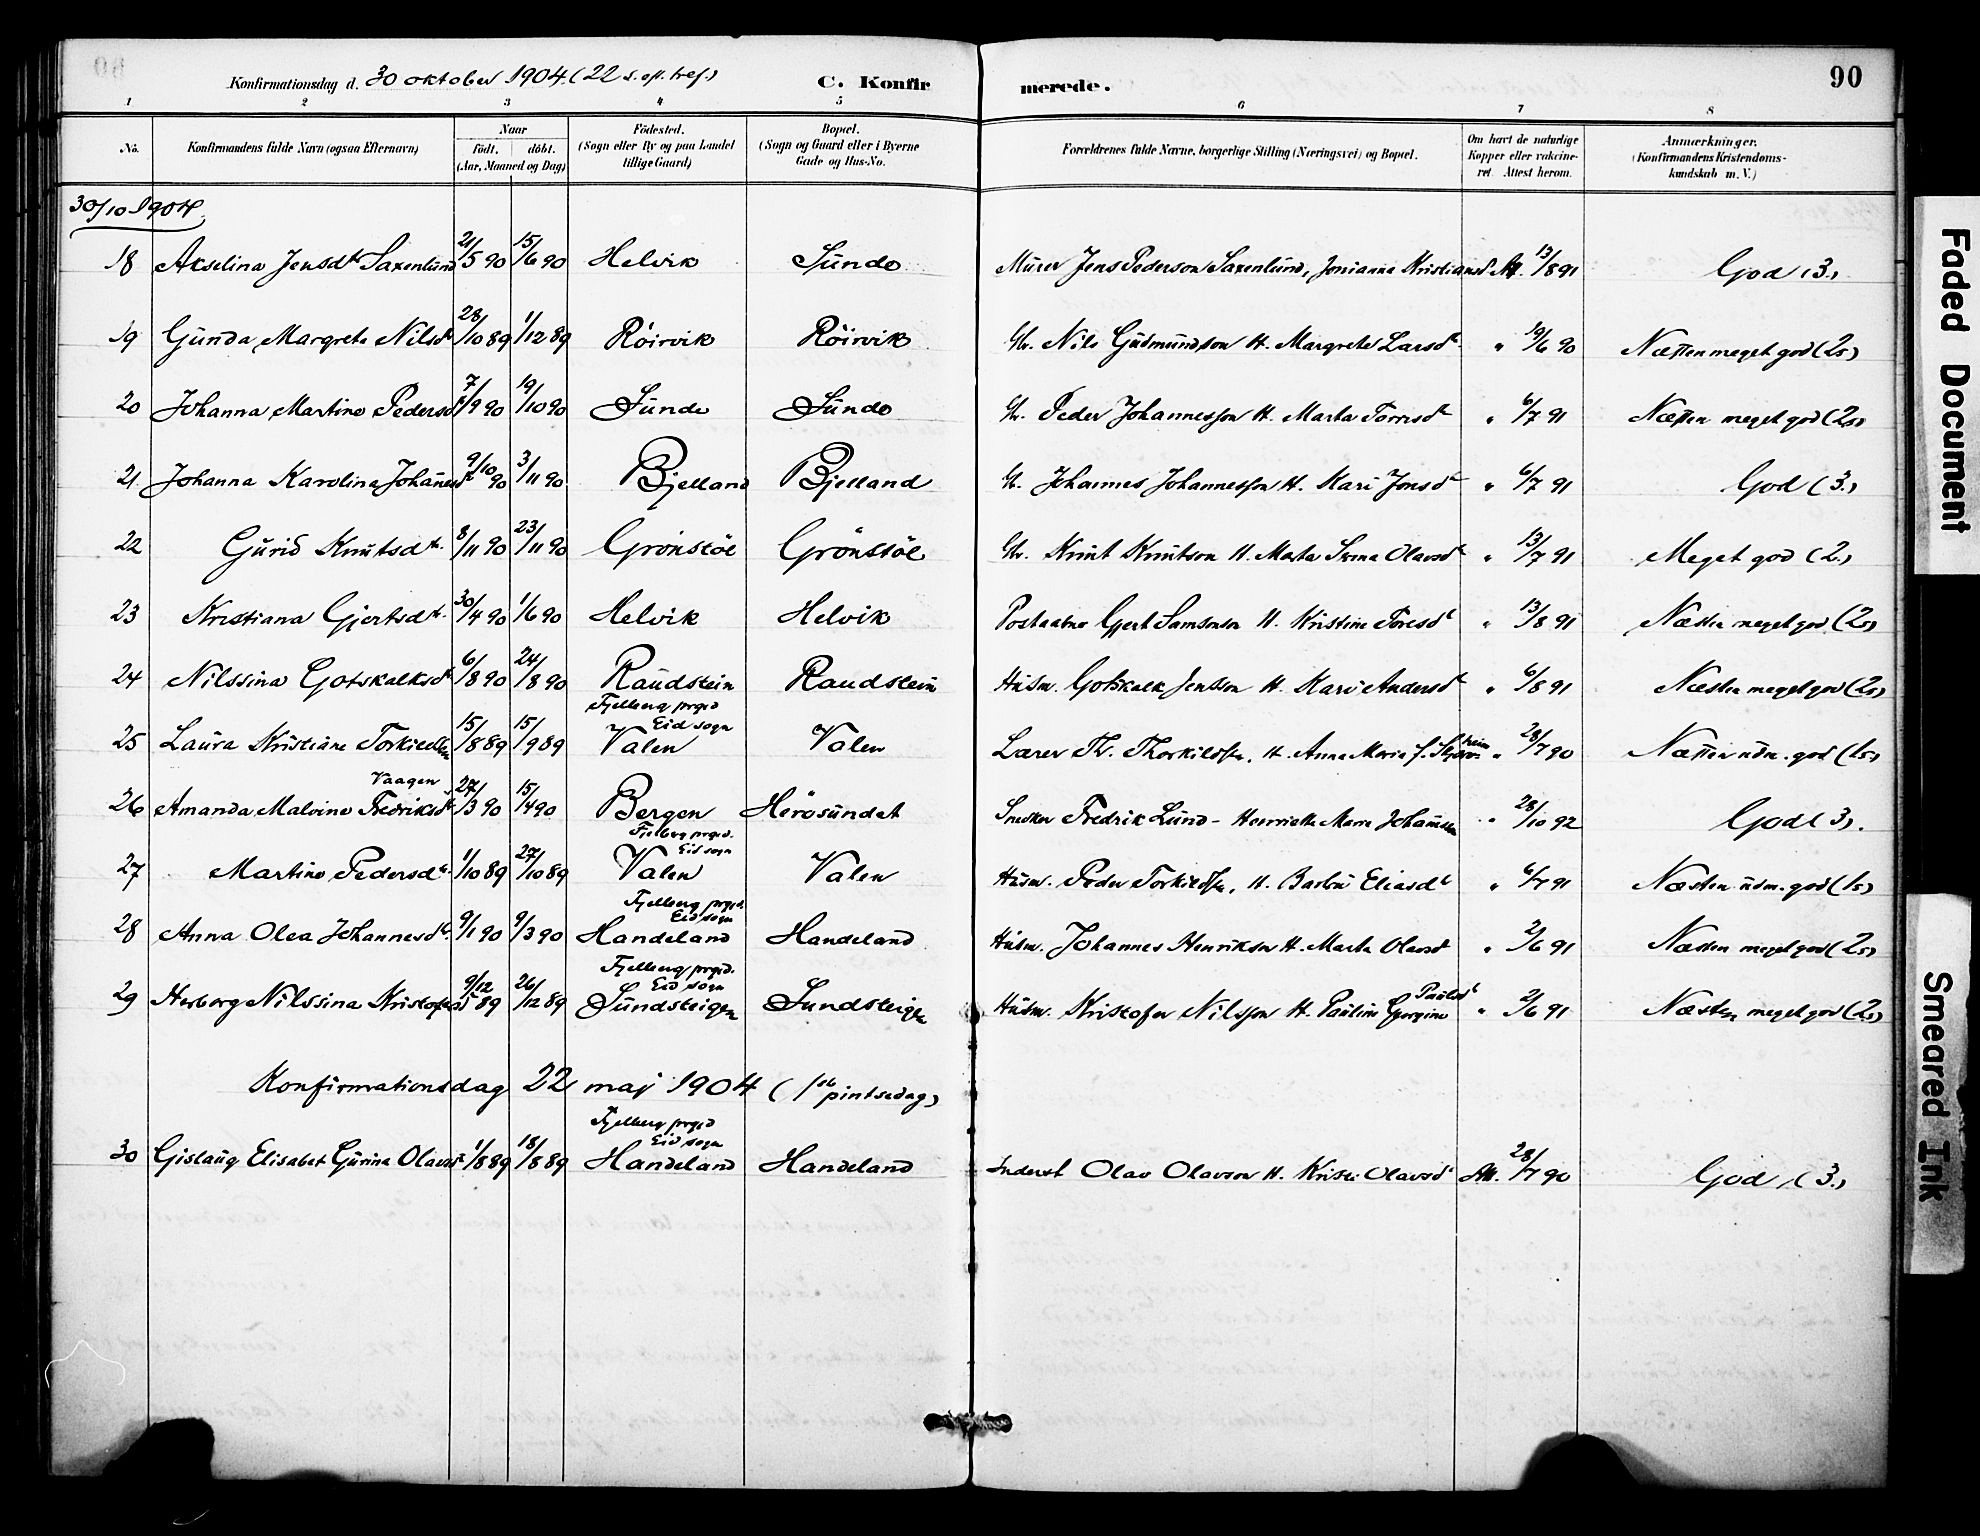 90
Konfirmationsdag d. 30 oktober 1904. (22 s. eft. tref.) C. Konfirmerede.
1 2 3 4 5 6 7 8
No. Konfirmandens fulde Navn (ogsaa Efternavn) Naar födt. döbt. (Aar, Maaned og Dag) Födested. (Sogn eller By og paa Landet tillige Gaard) Bopæl. (Sogn og Gaard eller i Byerne Gade og Hus-No. Forældrenes fulde Navne, borgerlige Stilling (Næringsvei) og Bopæl. Om havt de naturlige Kopper eller vakcineret. Attest herom. Anmærkninger. (Konfirmandens Kristendomskundskab m. V.)
30/10 1904
18 Akselina Jensdtr Saxenlund 21/5 90 15/6 90 Helvik Sunde Murer Jens Pederson Saxenlund, Jonianna Kristiansd Att. 13/8 91 God (3.)
19 Gunda Margrete Nilsdtr 28/10 89 1/12 89 Röirvik Röirvik Gbr. Nils Gudmundson H. Margrete Larsdtr " 19/6 90 Næsten meget god (2s)
20 Johanna Martine Pedersdtr 7/9 90 19/10 90 Sunde Sunde Gbr. Peder Johannesson H. Marta Torrisdtr " 6/7 91 Næsten meget god (2s)
21. Johanna Karolina Johannesdtr 9/10 90 3/11 90 Bjelland Bjelland Gbr. Johannes Johannesson H. Kari Jonsdtr " 6/7 91 God (3.)
22 Gurid Knutsdtr. 8/11 90 23/11 90 Grönstöl Grönstöl Gbr. Knut Knutson H. Marta Olavsdtr " 13/7 91 Meget god (2.)
23 Kristiana Gjertsdtr. 30/4 90 1/6 90 Helvik Helvik Gjert Samsonson H. Kristine Toresdtr " 13/8 91 Næsten meget god (2s)
24 Nilssina Gotskalksdtr 6/8 90 24/8 90 Raudstein Raudstein Husm. Gotskalk Jensson H. Kari Andersdtr " 6/8 91 Næsten meget god (2s)
Fjelberg prgjd Eid sogn
25 Laura Kristiane Torkildsen 15/8 89 15/9 89 Valen Valen Lærer Th. Thorkildsen, H. Anna Maria f. " 28/7 90 Næsten udm. god (1s)
Vaagen
26 Amanda Malvine Fredriksdtr 27/3 90 15/4 90 Bergen Herösundet Snedker Fredrik Lund - Henriette Marie Johannsen " 28/10 92 God (3).
Fjelberg prgjd. Eid sogn
27 Martine Pedersdtr. 1/10 89 27/10 89 Valen Valen Husm. Peder Torkildsen, H. Barbru Eliasdtr " 6/7 91 Næsten udm. god (1s)
Fjelberg prgjd. Eid sogn
28 Anna Olea Johannesdtr. 9/1 90 9/3 90 Handeland Handeland Husm. Johannes Henrikson H. Marta Olavsdt " 2/6 91 Næsten meget god (2s)
Fjelberg prgjd. Eid sogn
29 Herborg Nilssina Kristofersdtr 9/12 89 26/12 89 Sundsteigen Sundsteigen Husm. Kristofer Nilsson H. Pauline Georgine Paulsdtr " 2/6 91 Næsten meget god (2s)
Konfirmationsdag 22 maj 1904 (1ste pintsedag)
Fjelberg prgjd Eid sogn
30 Gislaug Elisabet Gurine Olavsdtr 1/8 89 18/8 89 Handeland Handeland Inderst Olav Olavson H. Kristi Olavsdtr Att. 28/7 90 God (3.)
Faded Document
Smeared Ink